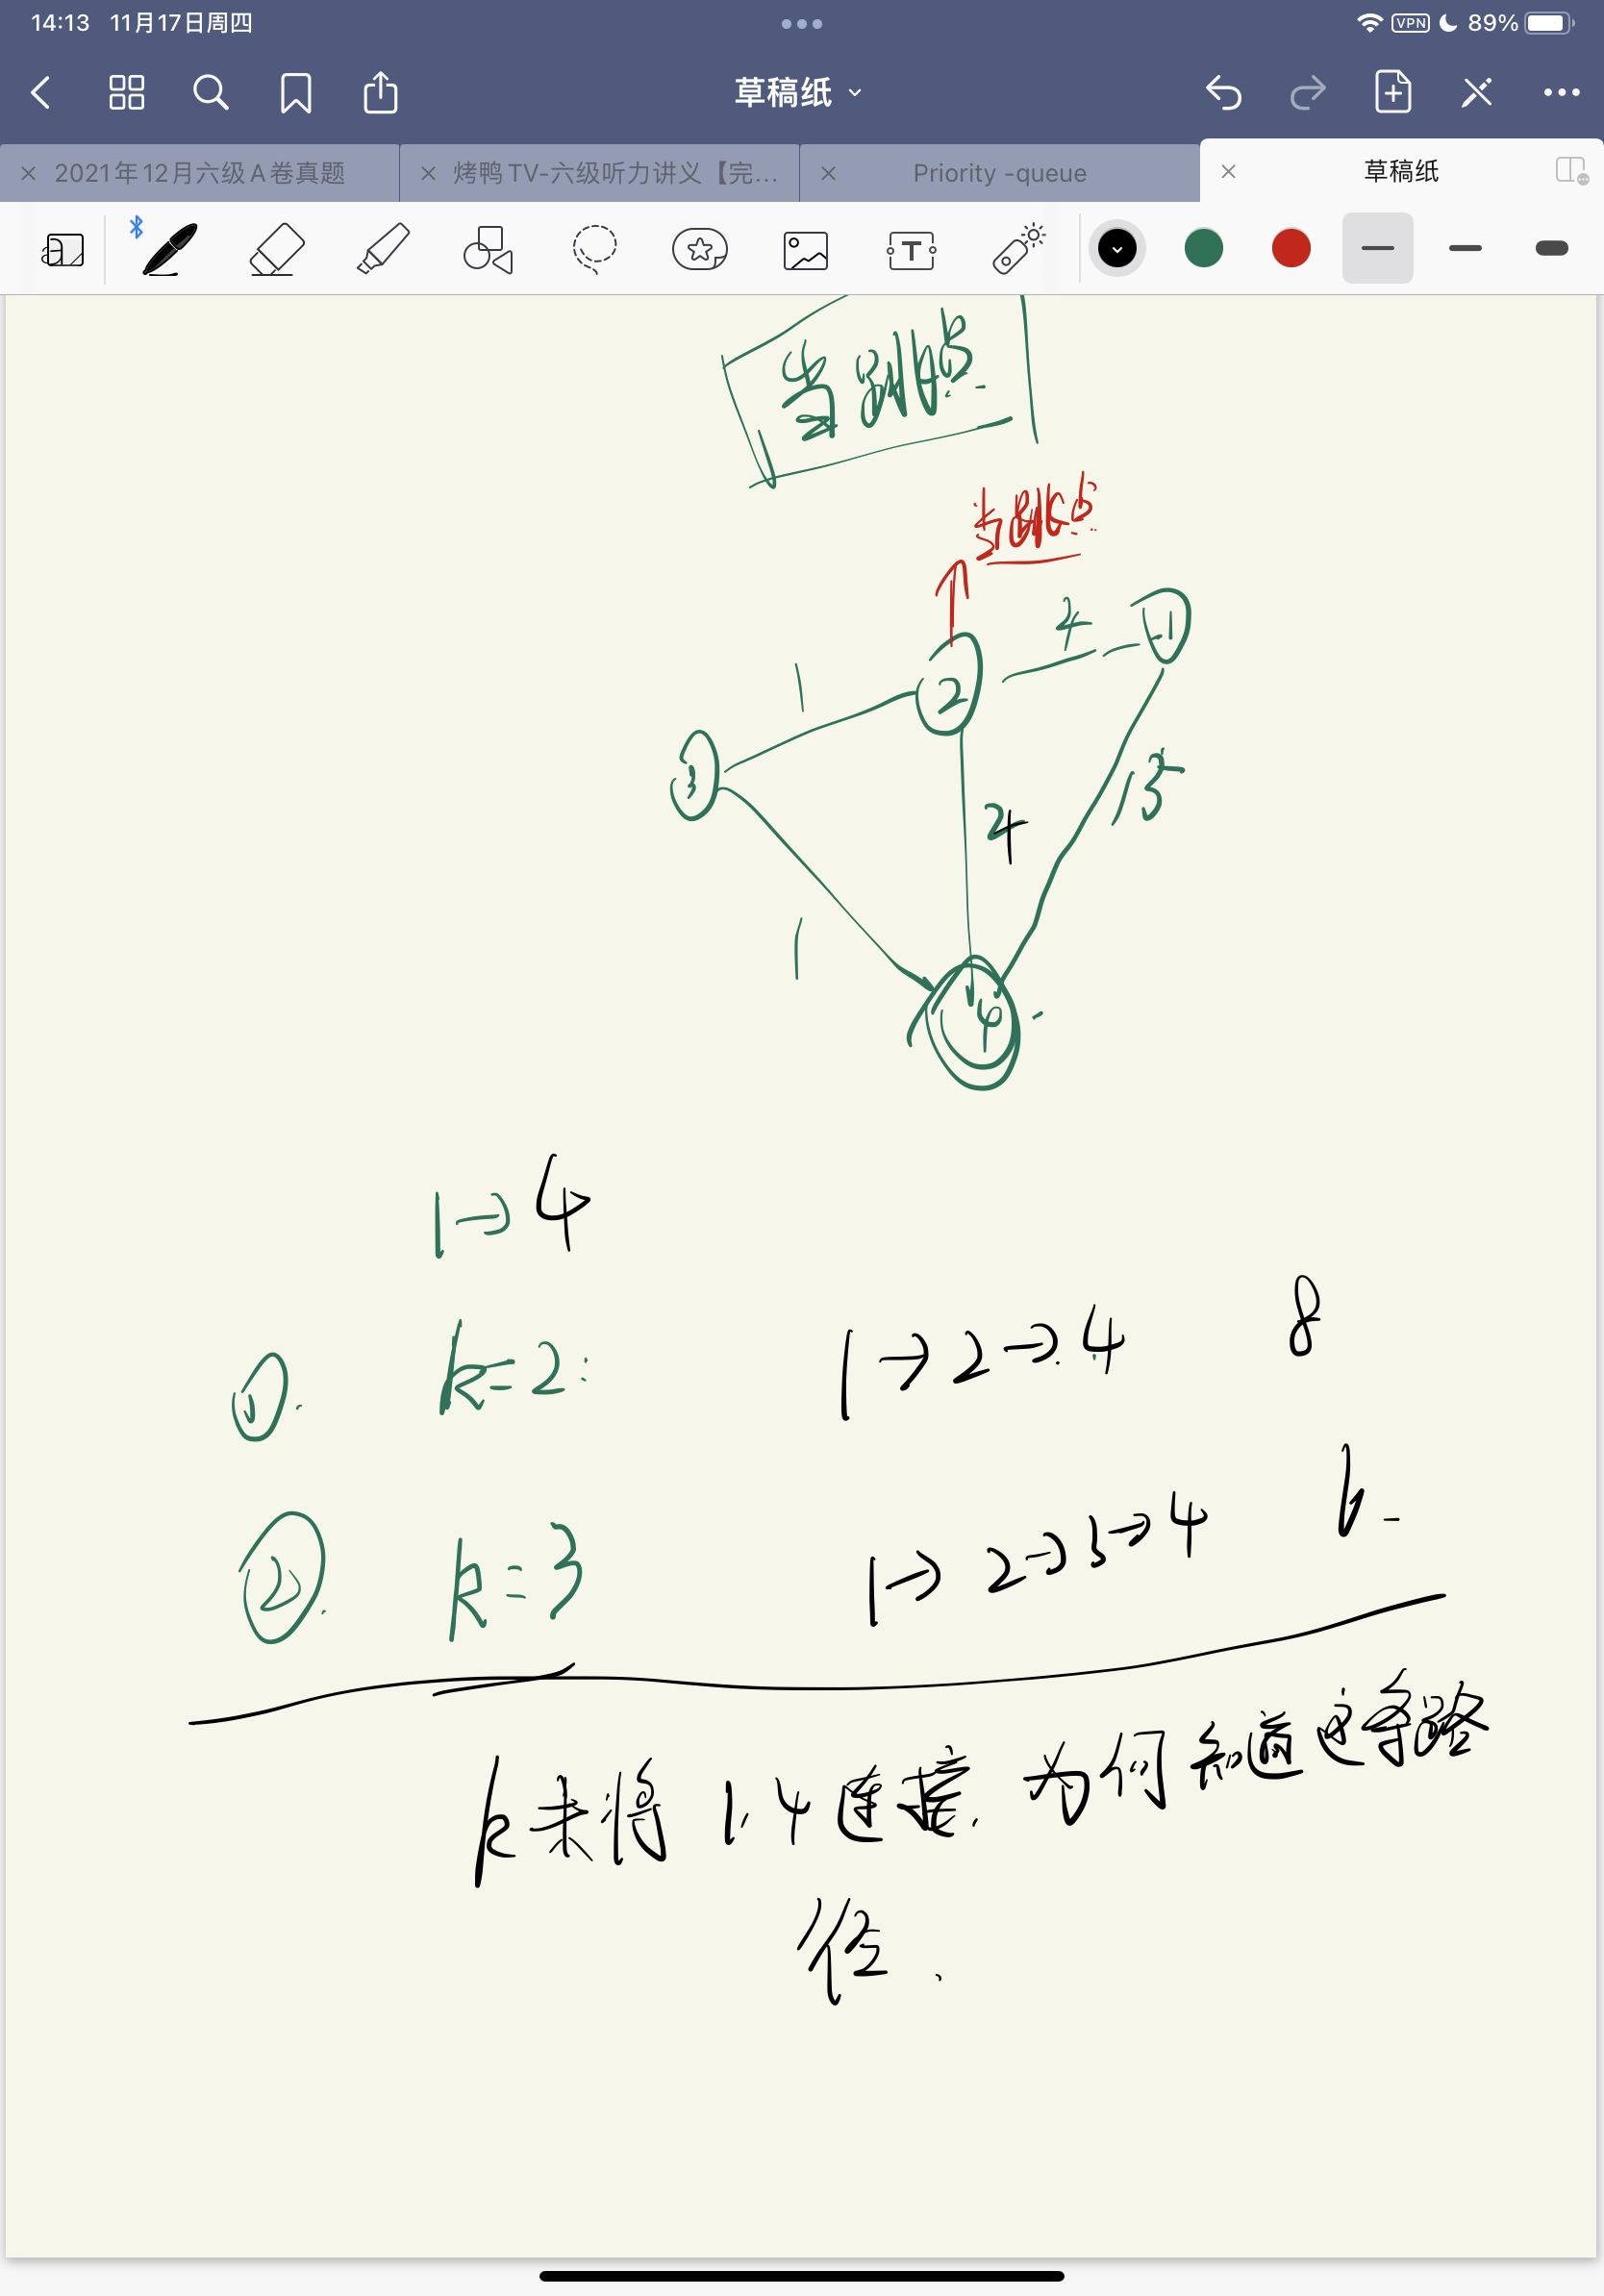 14:13 11月17日周四
VPN 89%
草稿纸
2021年12月六级A卷真题
烤鸭TV-六级听力讲义【完...
Priority -queue
草稿纸
T
当跳板
当跳板
4
1
1
2
3
4
15
1
4
1→4
①. k=2: 1→2→4 8
②. k=3 1→2→3→4 6
k未将 1.4连接.为何知道这条路
径.